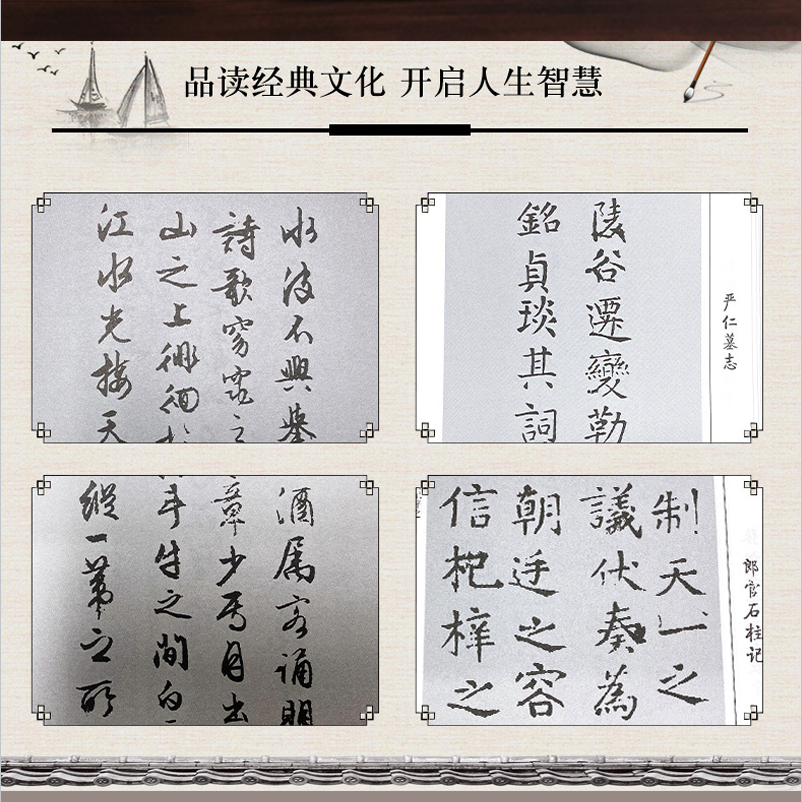 品读经典文化 开启人生智慧
水波不興舉
詩歌窈窕之
山之上徘徊於
江水光接天
严仁墓志
陵谷遷變勒
銘貞琰其詞
酒属客誦明
章少焉月出
斗牛之間白
縱一葦之所
郎官石柱记
制天一之
議伏奏為
朝廷之容
信杞梓之